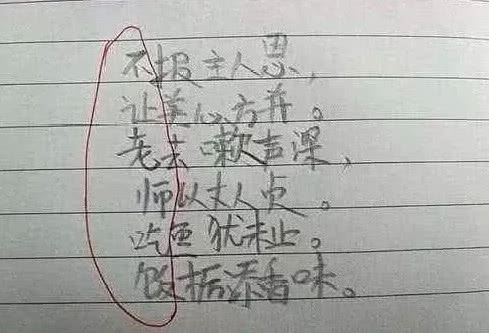 不报主人恩，
让美心方并。
老去嗽声深、
师以丈人贞。
吃犹未止。
饭栝添香味。